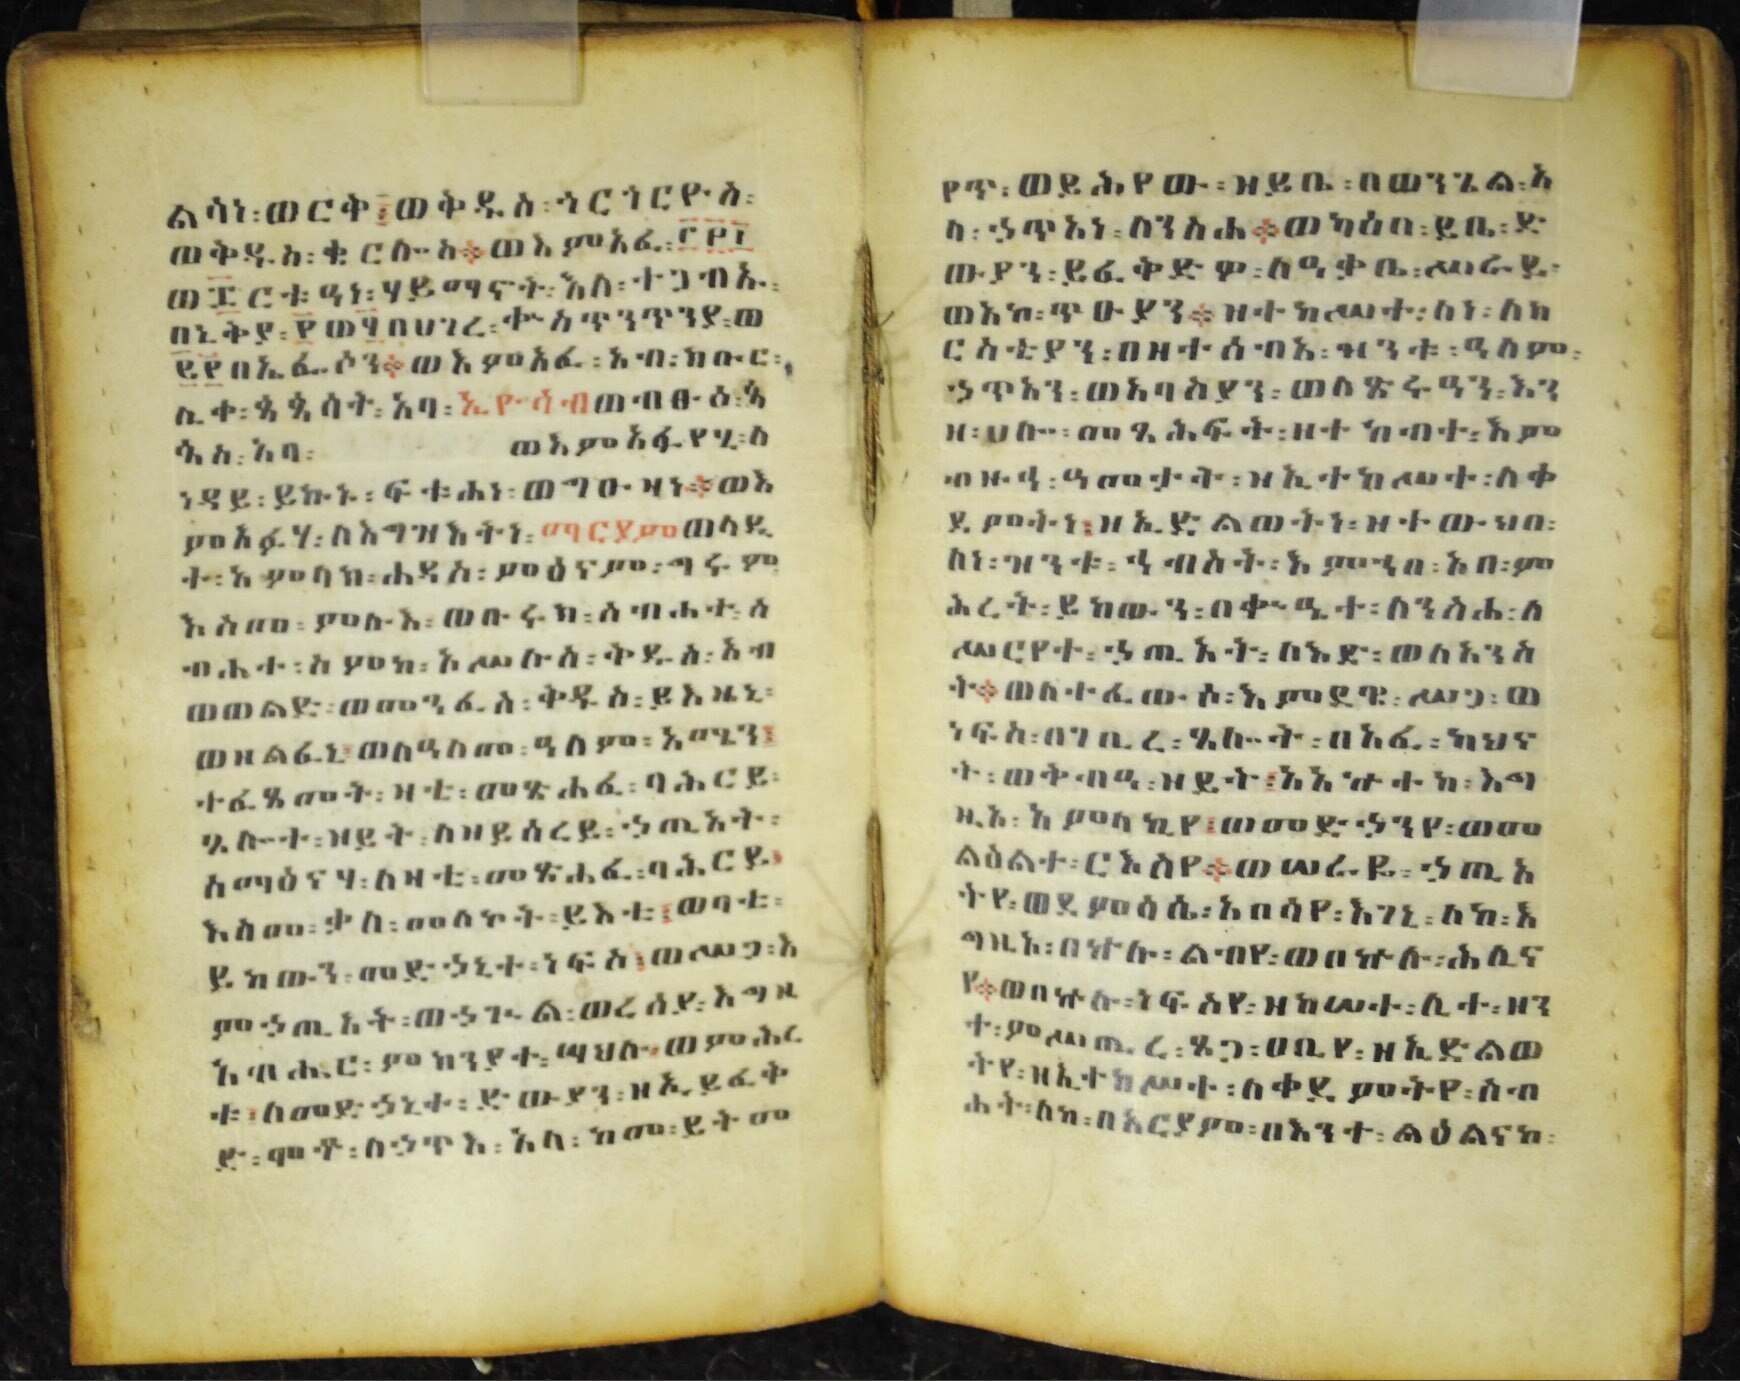 ልሳነ፡ወርቅ፤ወቅዱስ፡ጎርጎርዮስ፡
ወቅዱስ፡ቄርሎስ።ወእምአፈ፡፫፻፲
ወ፰ርቱዓነ፡ሃይማኖት፡እለ፡ተጋብኡ፡
በኒቅያ፡፻ወ፶በሀገረ፡ቍስጥንጥንያ፡ወ
፪፻በኤፌሶን።ወእምአፈ፡አብ፡ክቡር፡
ሊቀ፡ጳጳሳት፡አባ፡ኢዮሳብወብፁዕ፡ጳ
ጳስ፡አባ፡ ወእምአፉየሂ፡ለ
ነዳይ፡ይኩኑ፡ፍቱሐነ፡ወግዑዛነ።ወእ
ምአፉሃ፡ለእግዝእትነ፡ማርያምወላዲ
ተ፡አምላክ፡ሐዳስ፡ምዕናም፡ግሩም
እስመ፡ምሉእ፡ወቡሩክ፡ስብሐተ፡ስ
ብሐተ፡ስምከ፡እሥሉስ፡ቅዱስ፡አብ
ወወልድ፡ወመንፈስ፡ቅዱስ፡ይእዜኒ፡
ወዘልፈኒ፤ወለዓለመ፡ዓለም፡አሜን፤
ተፈጸመት፡ዛቲ፡መጽሐፈ፡ባሕርይ፡
ጸሎት፡ዛይት፡ለዛይሰረይ፡ኃጢአት፡
አማዕናሃ፡ለዛቲ፡መጽሐፈ፡ባሕርይ፤
እስመ፡ቃለ፡መለኮት፡ይእቲ፤ወባቲ፡
ይከውን፡መድኃኒተ፡ነፍስ፤ወሥጋ፡እ
ምኃጢአት፡ወኃጉል፡ወረሰያ፡እግዚ
አብሔር፡ምክንያተ፡ሣህሉ፤ወምሕረ
ቱ፤ለመድኃኒተ፡ድውያን፡ዘኢይፈቅ
ድ፡ሞቶ፡ለኃጥእ፡አላ፡ከመ፡ይትመ
የጥ፡ወይሕየው፡ዘይቤ፡በወንጌል፡አ
ለ፡ኃጥአነ፡ለንስሐ።ወካዕበ፡ይቤ፡ድ
ውያን፡ይፈቅድዎ፡ለዓቃቤ፡ሥራይ፡
ወአኮ፡ጥዑያን።ዝተከሥተ፡ለነ፡ለክ
ርስቲያን፡በዘተሰብአ፡ዝንቱ፡ዓለም፡
ኃጥአን፡ወአባስያን፡ወለጽሩዓን፡እን
ዘ፡ሀሎ፡መጸሕፍት፡ዘተኀብተ፡እም
ብዙኃ፡ዓመታት፡ዝኢተከሥተ፡ለቀ
ደምትነ፤ዝኢድልወትነ፡ዝተውህበ፡
ለነ፡ዝንቱ፡ኃብስት፡እምኀበ፡አበ፡ም
ሕረት፡ይከውን፡በቍዔተ፡ለንስሐ፡ለ
ሥርየተ፡ኃጢአት፡ለእድ፡ወለአንስ
ት።ወለተፈውሶ፡እምደዌ፡ሥጋ፡ወ
ነፍስ፡በገቢረ፡ጸሎት፡በአፈ፡ካህና
ት፡ወቅብዓ፡ዝይት፤አአኵተከ፡እግ
ዚአ፡አምላኪየ፤ወመድኃንየ፡ወመ
ልዕልተ፡ርእስየ።ወሠራዬ፡ኃጢአ
ትየ፡ወደምሳሴ፡አበሳየ፡እገኒ፡ለከ፡እ
ግዚአ፡በኵሉ፡ልብየ፡ወበኵሉ፡ሕሊና
የ።ወበኵሉ፡ነፍስየ፡ዝከሠተ፡ሊተ፡ዘን
ተ፡ምሥጢረ፡ጸጋ፡ዐቢየ፡ዘኢድልወ
ትየ፡ዘኢተከሥተ፡ለቀደምትየ፡ስብ
ሐት፡ለከ፡በአርያም፡በእንተ፡ልዕልናከ፡